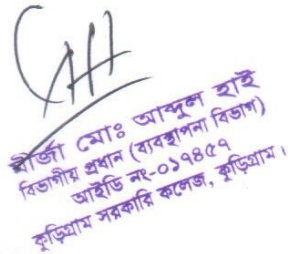 মীর্জা মোঃ আব্দুল হাই
বিভাগীয় প্রধান (ব্যবস্থাপনা বিভাগ)
আইডি নং-০১৭৪৫৭
কুড়িগ্রাম সরকারি কলেজ, কুড়িগ্রাম।